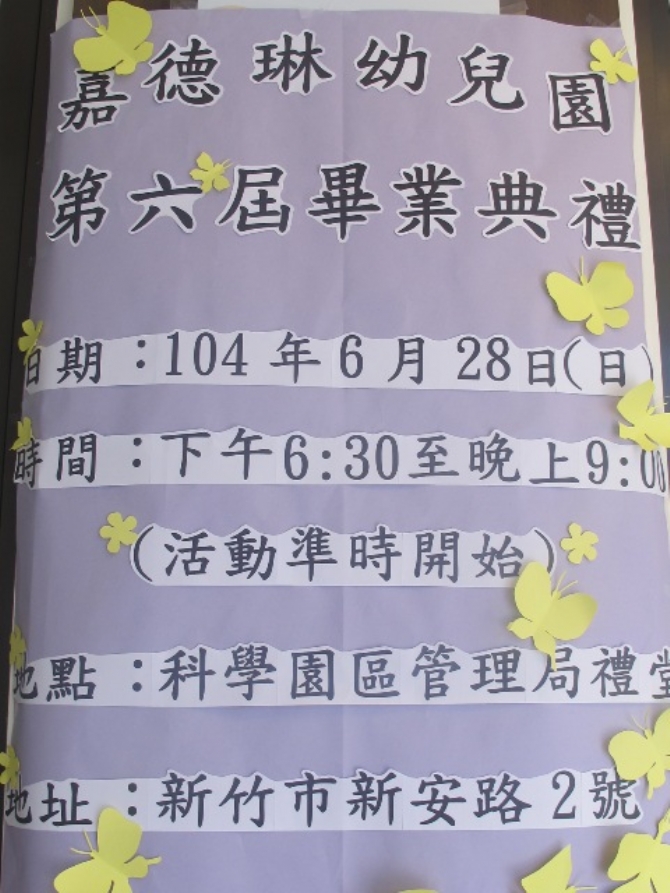 嘉德琳幼兒園
第六屆畢業典禮
日期：104年6月28日(日)
時間：下午6:30至晚上9:00
(活動準時開始)
地點：科學園區管理局禮堂
地址：新竹市新安路2號